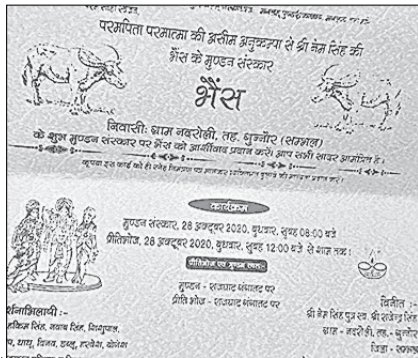 परमपिता परमात्मा की असीम अनुकम्पा से श्री नेम सिंह की
भैंस के मुण्डन संस्कार
भैंस
निवासी: ग्राम नदरोली, तह. गुन्नौर (सम्भल)
के शुभ मुण्डन संस्कार पर भैंस को आर्शीवाद प्रदान करें। आप सभी सादर आमंत्रित हैं।
कार्यक्रम
मुण्डन संस्कार, 28 अक्टूबर 2020, बुधवार, सुबह 08:00 बजे
प्रीतिभोज, 28 अक्टूबर 2020, बुधवार, सुबह 12:00 बजे से शाम तक।
मुण्डन - राजघाट गंगातट पर
प्रीति भोज - राजघाट गंगातट पर
र्शनाभिलाषी :-
हकिम सिंह, नवाब सिंह, शिशुपाल,
विनीत :-
श्री नेम सिंह पुत्र स्व. श्री राजेन्द्र सिंह
ग्राम - नदरोली, तह. -
जिला -